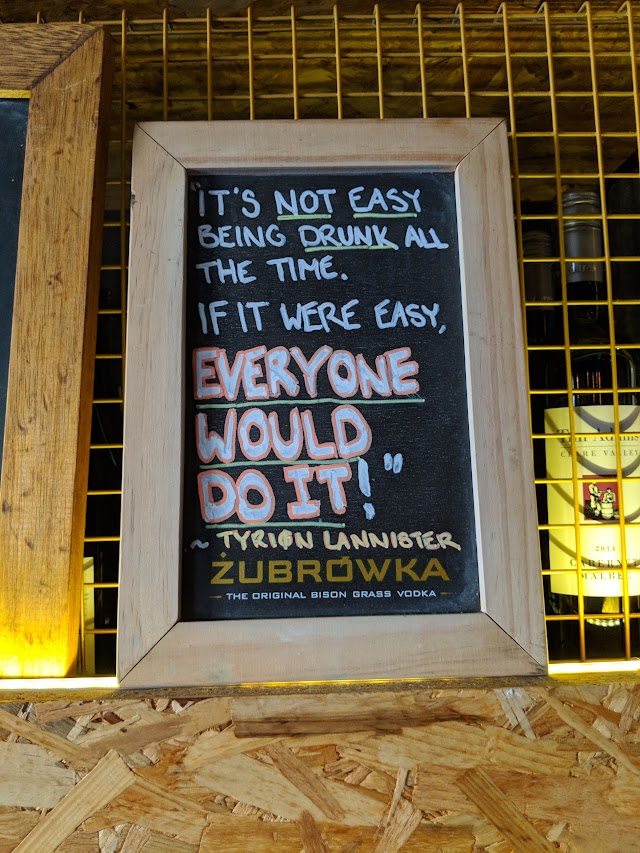 "IT'S NOT EASY
BEING DRUNK ALL
THE TIME.
IF IT WERE EASY,
EVERYONE
WOULD
DO IT!"
~ TYRION LANNISTER
ŻUBRÓWKA
THE ORIGINAL BISON GRASS VODKA
CLARE VALLEY
2014
CABERNET
MALBEC